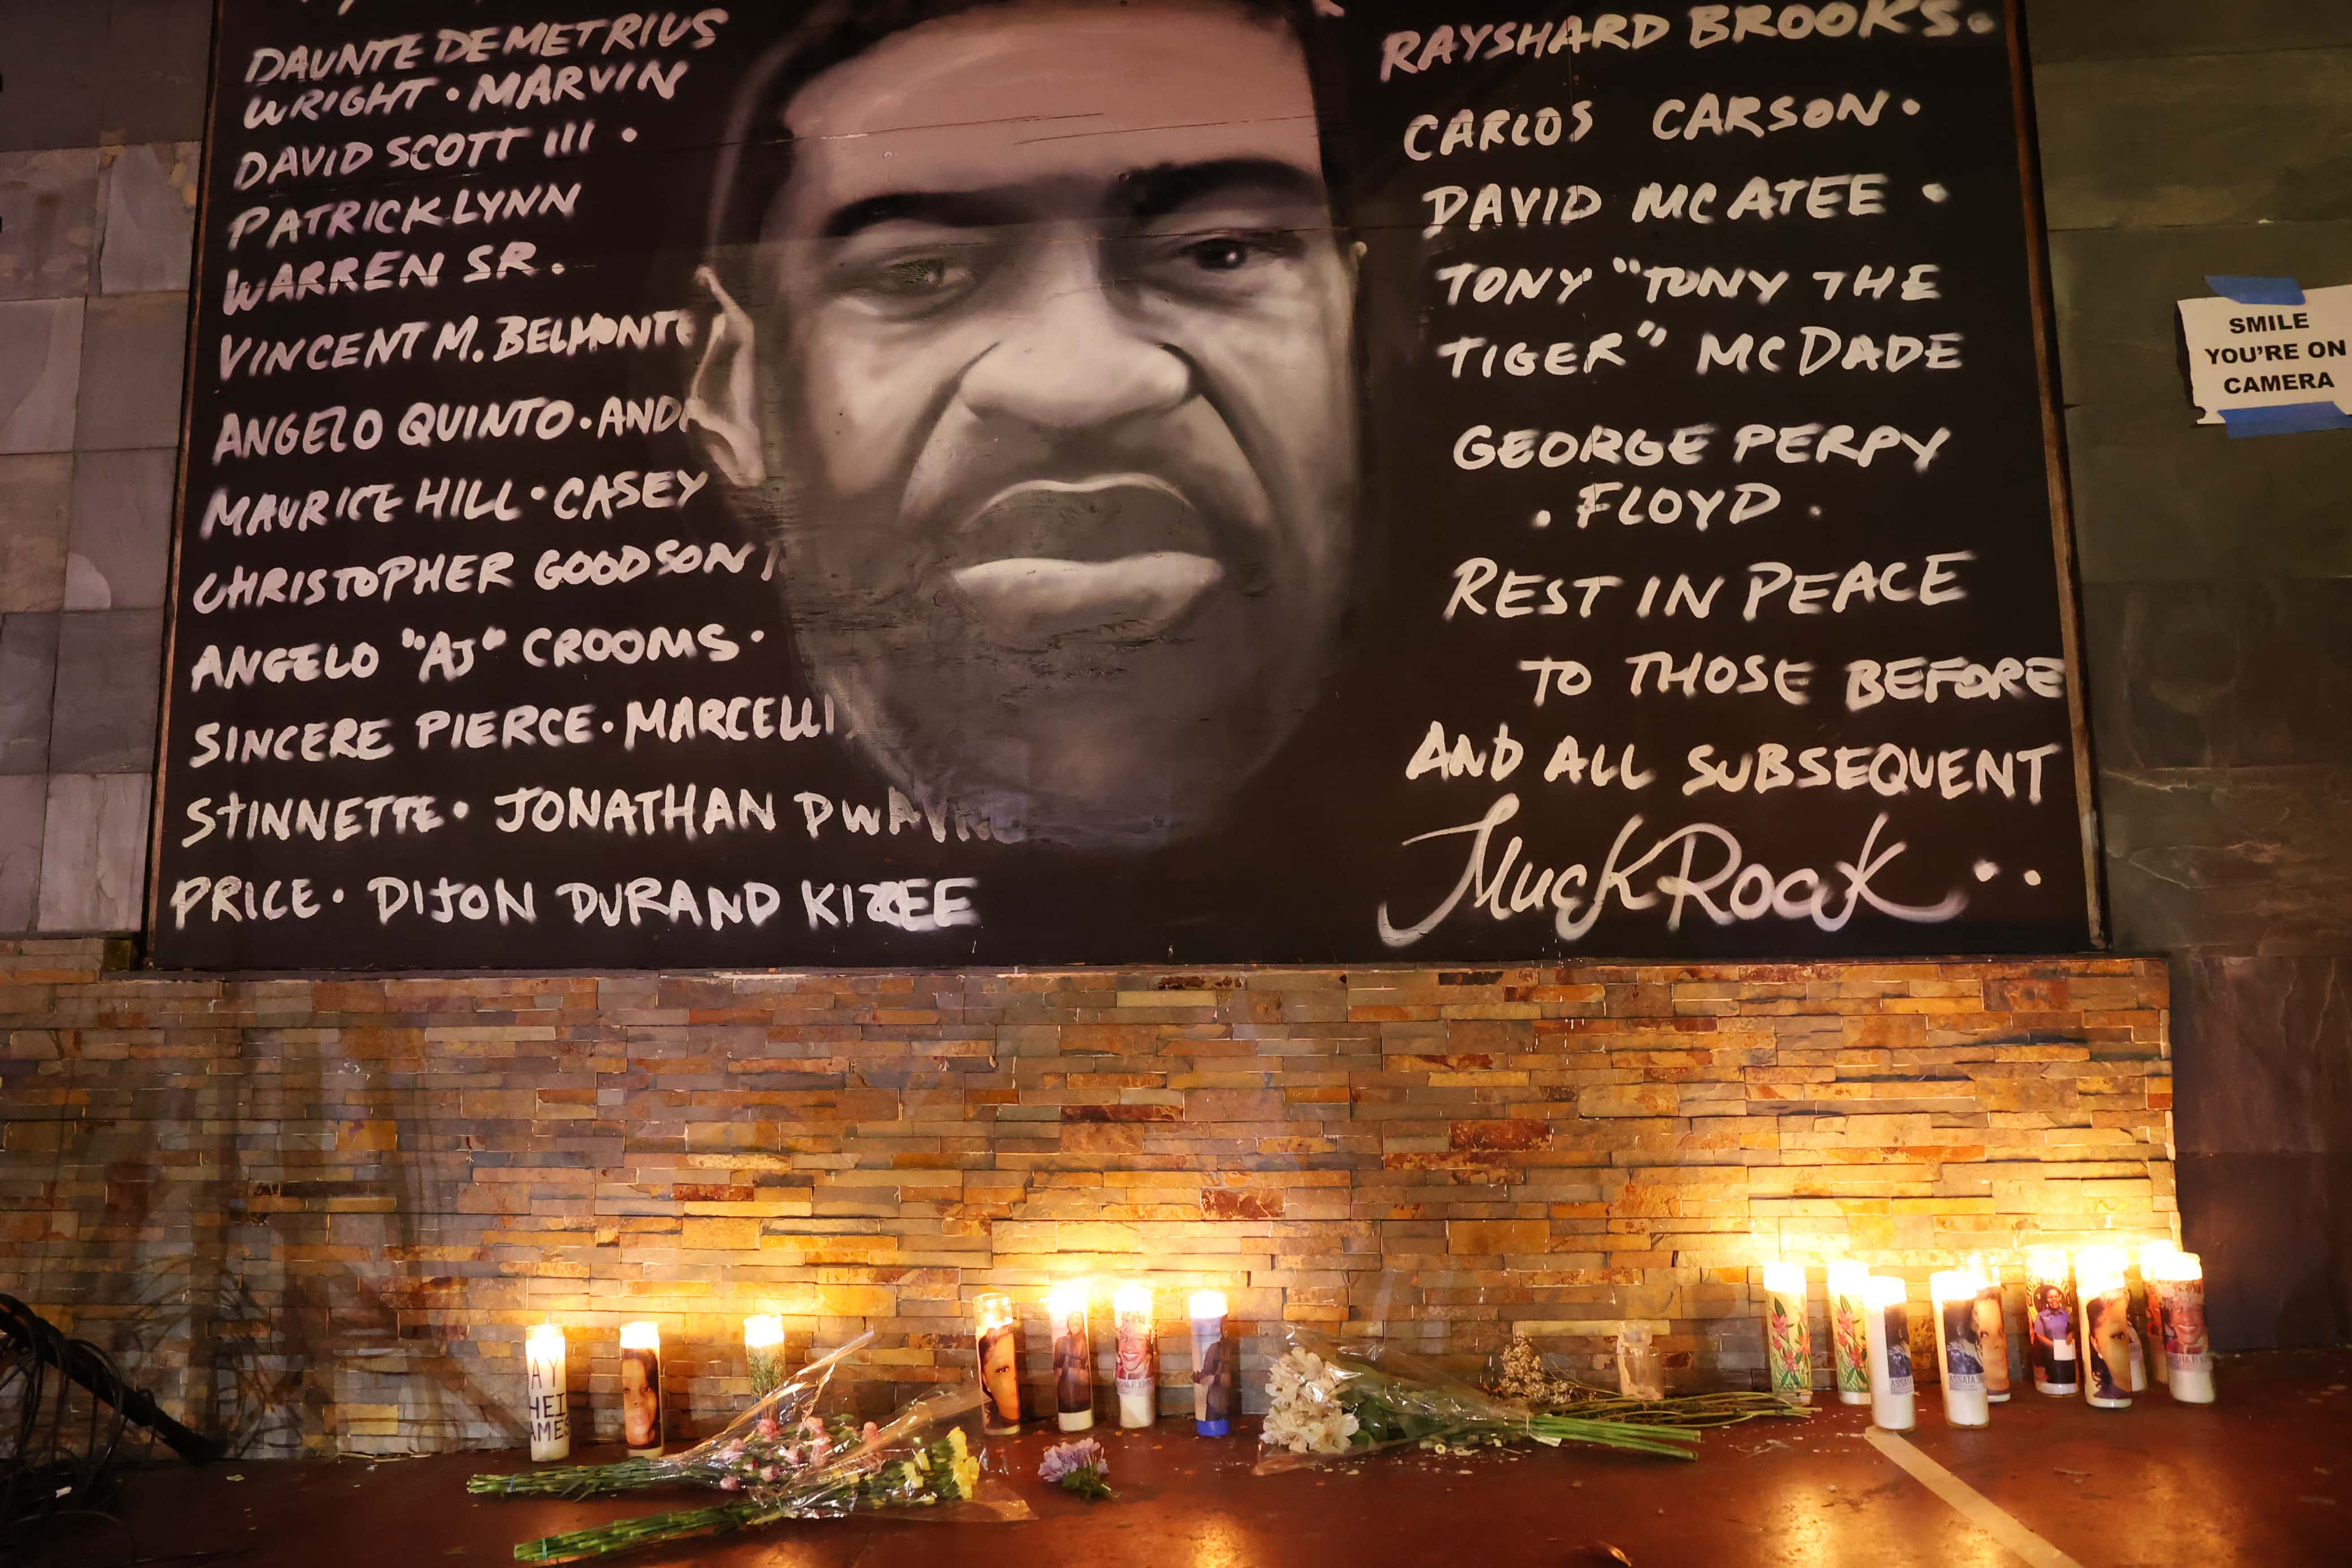 DAUNTE DEMETRIUS
WRIGHT • MARVIN
DAVID SCOTT III •
PATRICK LYNN
WARREN SR.
VINCENT M. BELMONTE
ANGELO QUINTO • AND
MAURICE HILL • CASEY
CHRISTOPHER GOODSON
ANGELO "AJ" CROOMS •
SINCERE PIERCE • MARCELLI
STINNETTE • JONATHAN DWAYNE
PRICE • DIJON DURAND KIZZEE
RAYSHARD BROOKS.
CARLOS CARSON •
DAVID MCATEE •
TONY "TONY THE
TIGER" MCDADE
GEORGE PERPY
• FLOYD •
REST IN PEACE
TO THOSE BEFORE
AND ALL SUBSEQUENT
MuckRock ••
SMILE
YOU'RE ON
CAMERA
AY
HEI
AMES
ASSATA